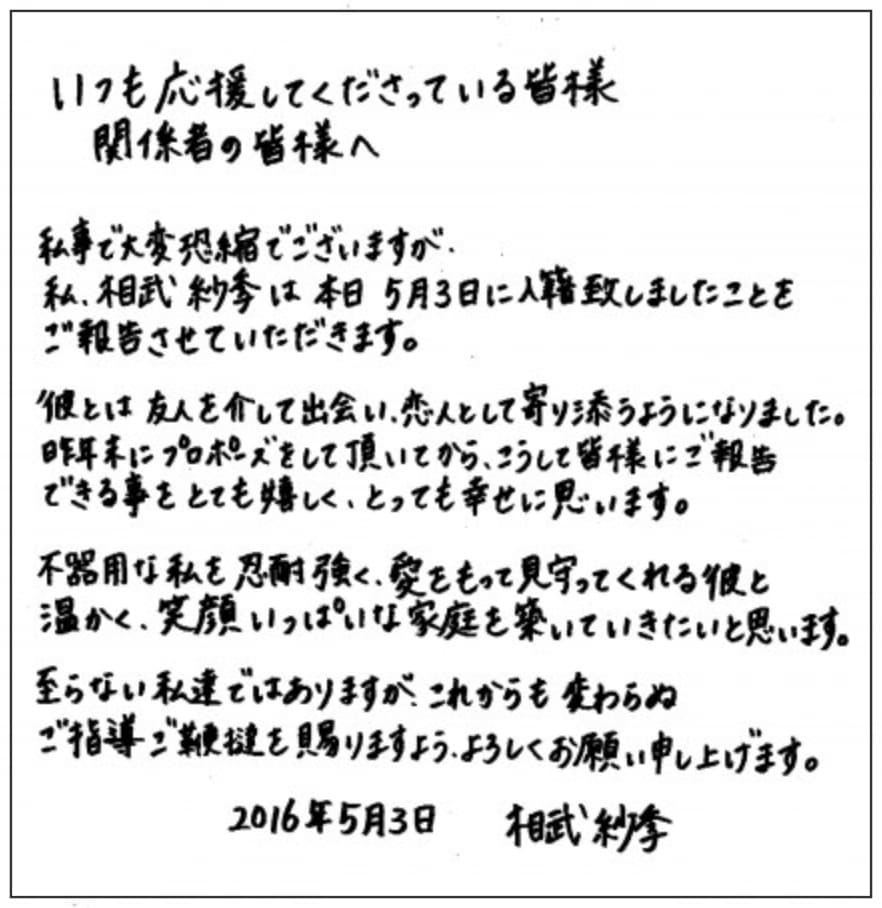 いつも応援してくださっている皆様
関係者の皆様へ
私事で大変恐縮でございますが、
私、相武紗季は本日5月3日に入籍致しましたことを
ご報告させていただきます。
彼とは友人を介して出会い、恋人として寄り添うようになりました。
昨年末にプロポーズをして頂いてから、こうして皆様にご報告
できる事をとても嬉しく、とっても幸せに思います。
不器用な私を忍耐強く、愛をもって見守ってくれる彼と
温かく、笑顔いっぱいな家庭を築いていきたいと思います。
至らない私達ではありますが、これからも変わらぬ
ご指導ご鞭撻を賜りますよう、よろしくお願い申し上げます。
2016年5月3日 相武紗季